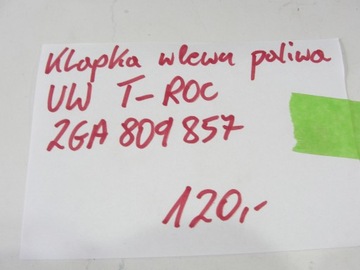 Klapka wlewu paliwa
VW T-ROC
2GA 809 857
120,-